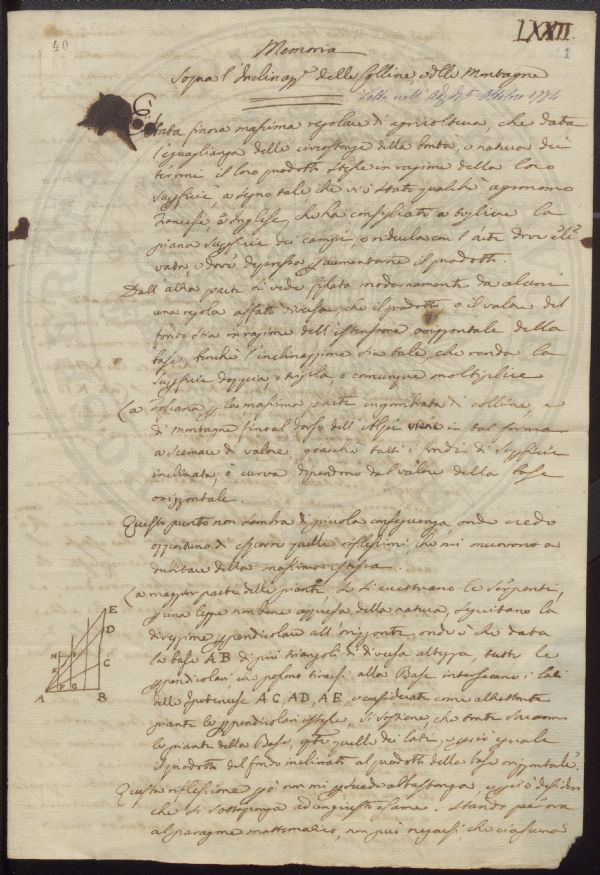 40
LXXII.
1
Memoria
Sopra l'Inclinaz.e delle Colline e delle Montagne
Letta nell' Ad. 5 Ottobre 1774
È stata finora massima regolare di agricoltura, che data
l'eguaglianza delle circostanze della bontà, e natura dei
terreni il loro prodotto stesse in ragione della loro
superficie, a segno tale, che vi è stato qualche agronomo
Francese, o Inglese, che ha consigliato a togliere la
piana superficie dei campi, e ridurla con l'arte dove ele
vata, e dove depressa p aumentarne il prodotto.
Dall'altra parte si vede fissata modernamente da alcuni
una regola affatto diversa, che il prodotto, o il valore del
fondo stia in ragione dell'estensione orizzontale della
base, benchè l'inclinazione sia tale, che renda la
superficie doppia, o tripla, o comunque moltiplice
La Toscana p la massima parte ingombrata di colline, e
di montagne fino al dorso dell'Alpi viene in tal forma
a scemare di valore, giacchè tutti i fondi di superficie
inclinata, o curva dipendono dal valore della base
orizzontale.
Questo punto non sembra di piccola conseguenza onde credo
opportuno di esporre quelle riflessioni, che mi muovono a
dubitare della massima istessa.
La maggior parte delle piante, se si eccettuano le serpenti,
p una legge non bene appresa della natura, seguitano la
direzione ppendicolare all'orizzonte, onde è che data
la base AB di più triangoli di diversa altezza, tutte le
ppendicolari, che possono tirarsi alla Base intersecano i lati
delle Ipotenuse AC, AD, AE, e considerate come altrettante
piante le ppendicolari istesse, si sostiene, che tante saranno
le piante della Base, q.te quelle dei lati, e perciò eguale
il prodotto del fondo inclinato al prodotto della base orizzontale.
Questa riflessione però non mi psuade abbastanza, e perciò desidero
che si sottoponga ad un giusto esame. Stando per ora
al paragone mattematico, non può negarsi che ciascuna
E
D
C
A
F
G
B